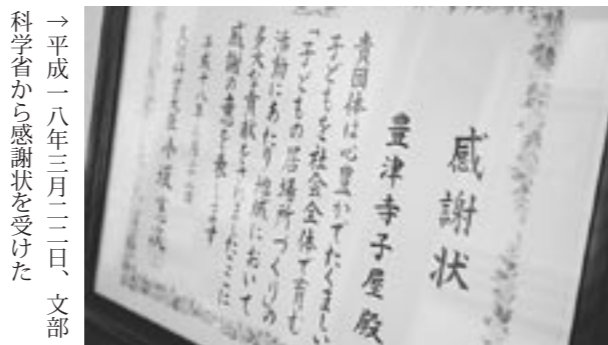 感謝状
豊津寺子屋殿
貴団体は心豊かでたくましい
子どもを社会全体で育む
「子どもの居場所づくりの
活動にあたり地域において
多大な貢献をされましたここに
感謝の意を表します
→平成一八年三月二二日、文部
科学省から感謝状を受けた